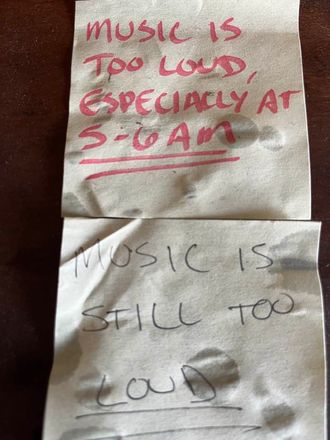 MUSIC IS
TOO LOUD,
ESPECIALLY AT
5-6 AM
MUSIC IS
STILL TOO
LOUD